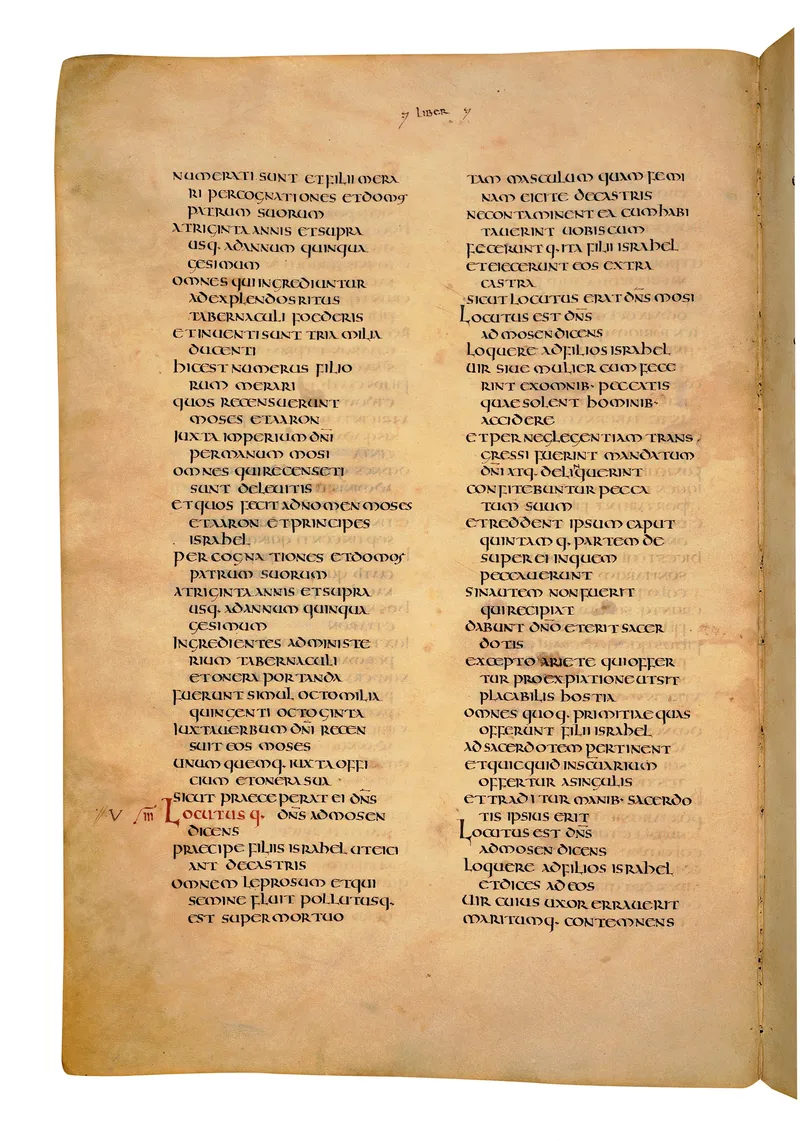 LIBER
NUMERATI SUNT ET FILII MERA
RI PER COGNATIONES ET DOMOS
PATRUM SUORUM
A TRIGINTA ANNIS ET SUPRA
USQ. AD ANNUM QUINQUA
GESIMUM
OMNES QUI INGREDIUNTUR
AD EXPLENDOS RITUS
TABERNACULI FOEDERIS
ET INUENTI SUNT TRIA MILIA
DUCENTI
HIC EST NUMERUS FILIO
RUM MERARI
QUOS RECENSUERUNT
MOSES ET AARON
IUXTA IMPERIUM DN̄I
PER MANUM MOSI
OMNES QUI RECENSETI
SUNT DE LEUITIS
ET QUOS FECIT AD NOMEN MOSES
ET AARON ET PRINCIPES
ISRAHEL
PER COGNATIONES ET DOMOS
PATRUM SUORUM
A TRIGINTA ANNIS ET SUPRA
USQ. AD ANNUM QUINQUA
GESIMUM
INGREDIENTES AD MINISTE
RIUM TABERNACULI
ET ONERA PORTANDA
FUERUNT SIMUL OCTO MILIA
QUINGENTI OCTOGINTA
IUXTA UERBUM DN̄I RECEN
SUIT EOS MOSES
UNUM QUEMQ. IUXTA OFFI
CIUM ET ONERA SUA
SICUT PRAECEPERAT EI DN̄S
V LOCUTUSQ. DN̄S AD MOSEN
DICENS
PRAECIPE FILIIS ISRAHEL UT EICI
ANT DE CASTRIS
OMNEM LEPROSUM ET QUI
SEMINE FLUIT POLLUTUSQ.
EST SUPER MORTUO
TAM MASCULUM QUAM FEMI
NAM EICITE DE CASTRIS
NE CONTAMINENT EA CUM HABI
TAUERINT UOBISCUM
FECERUNTQ. ITA FILII ISRAHEL
ET EIECERUNT EOS EXTRA
CASTRA
SICUT LOCUTUS ERAT DN̄S MOSI
LOCUTUS EST DN̄S
AD MOSEN DICENS
LOQUERE AD FILIOS ISRAHEL
UIR SIUE MULIER CUM FECE
RINT EX OMNIB· PECCATIS
QUAE SOLENT HOMINIB·
ACCIDERE
ET PER NEGLEGENTIAM TRANS
GRESSI FUERINT MANDATUM
DN̄I ATQ. DELIQUERINT
CONFITEBUNTUR PECCA
TUM SUUM
ET REDDENT IPSUM CAPUT
QUINTAMQ. PARTEM DE
SUPER EI IN QUEM
PECCAUERUNT
SIN AUTEM NON FUERIT
QUI RECIPIAT
DABUNT DN̄O ET ERIT SACER
DOTIS
EXCEPTO ARIETE QUI OFFER
TUR PRO EXPIATIONE UT SIT
PLACABILIS HOSTIA
OMNES QUOQ. PRIMITIAE QUAS
OFFERUNT FILII ISRAHEL
AD SACERDOTEM PERTINENT
ET QUICQUID IN SCUARIUM
OFFERTUR A SINGULIS
ET TRADITUR MANIB· SACERDO
TIS IPSIUS ERIT
LOCUTUS EST DN̄S
AD MOSEN DICENS
LOQUERE AD FILIOS ISRAHEL
ET DICES AD EOS
UIR CUIUS UXOR ERRAUERIT
MARITUMQ. CONTEMNENS